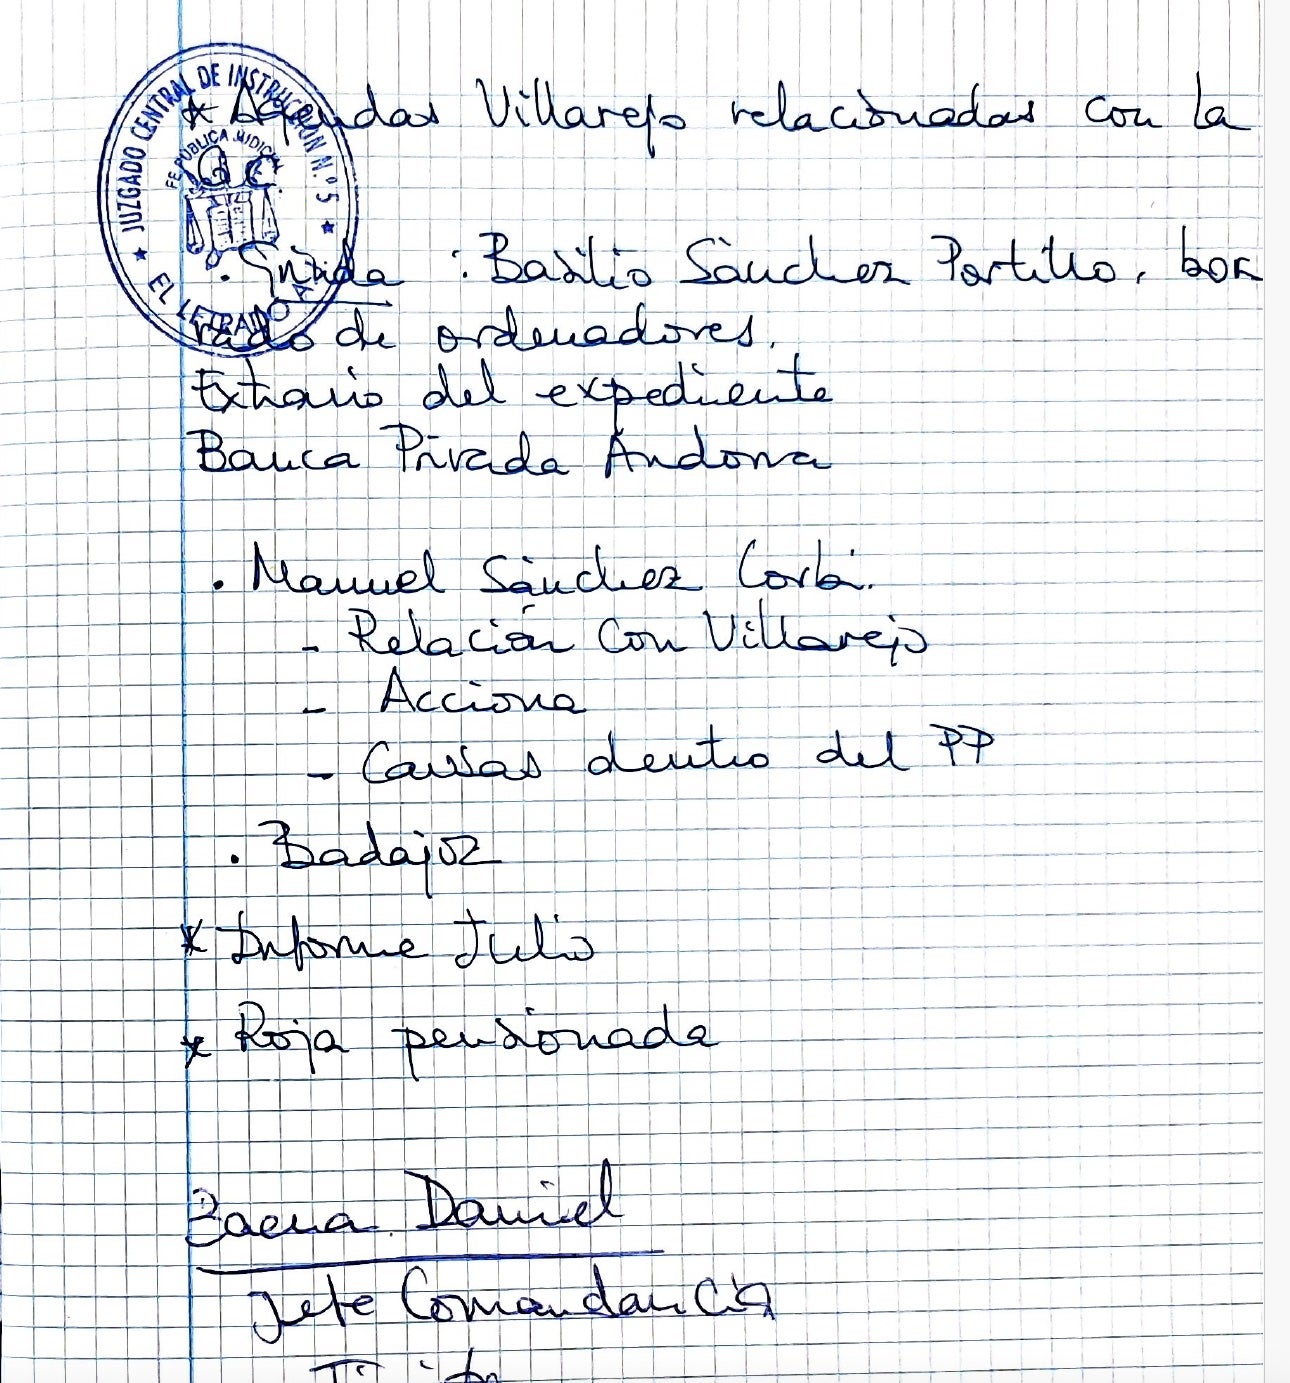 * Agendas Villarejo relacionadas con la
GC.
JUZGADO CENTRAL DE INSTRUCCIÓN N.º 5
FE PÚBLICA JUDICIAL
EL LETRADO A
. : Basilio Sánchez Portillo, bor
rado de ordenadores.
Extravio del expediente
Banca Privada Andorra
. Manuel Sánchez Corbí.
- Relación Con Villarejo
- Acciona
- Causas dentro del PP
. Badajoz
* Informe Julio
* Roja pensionada
Baena Daniel
Jefe Comandancia